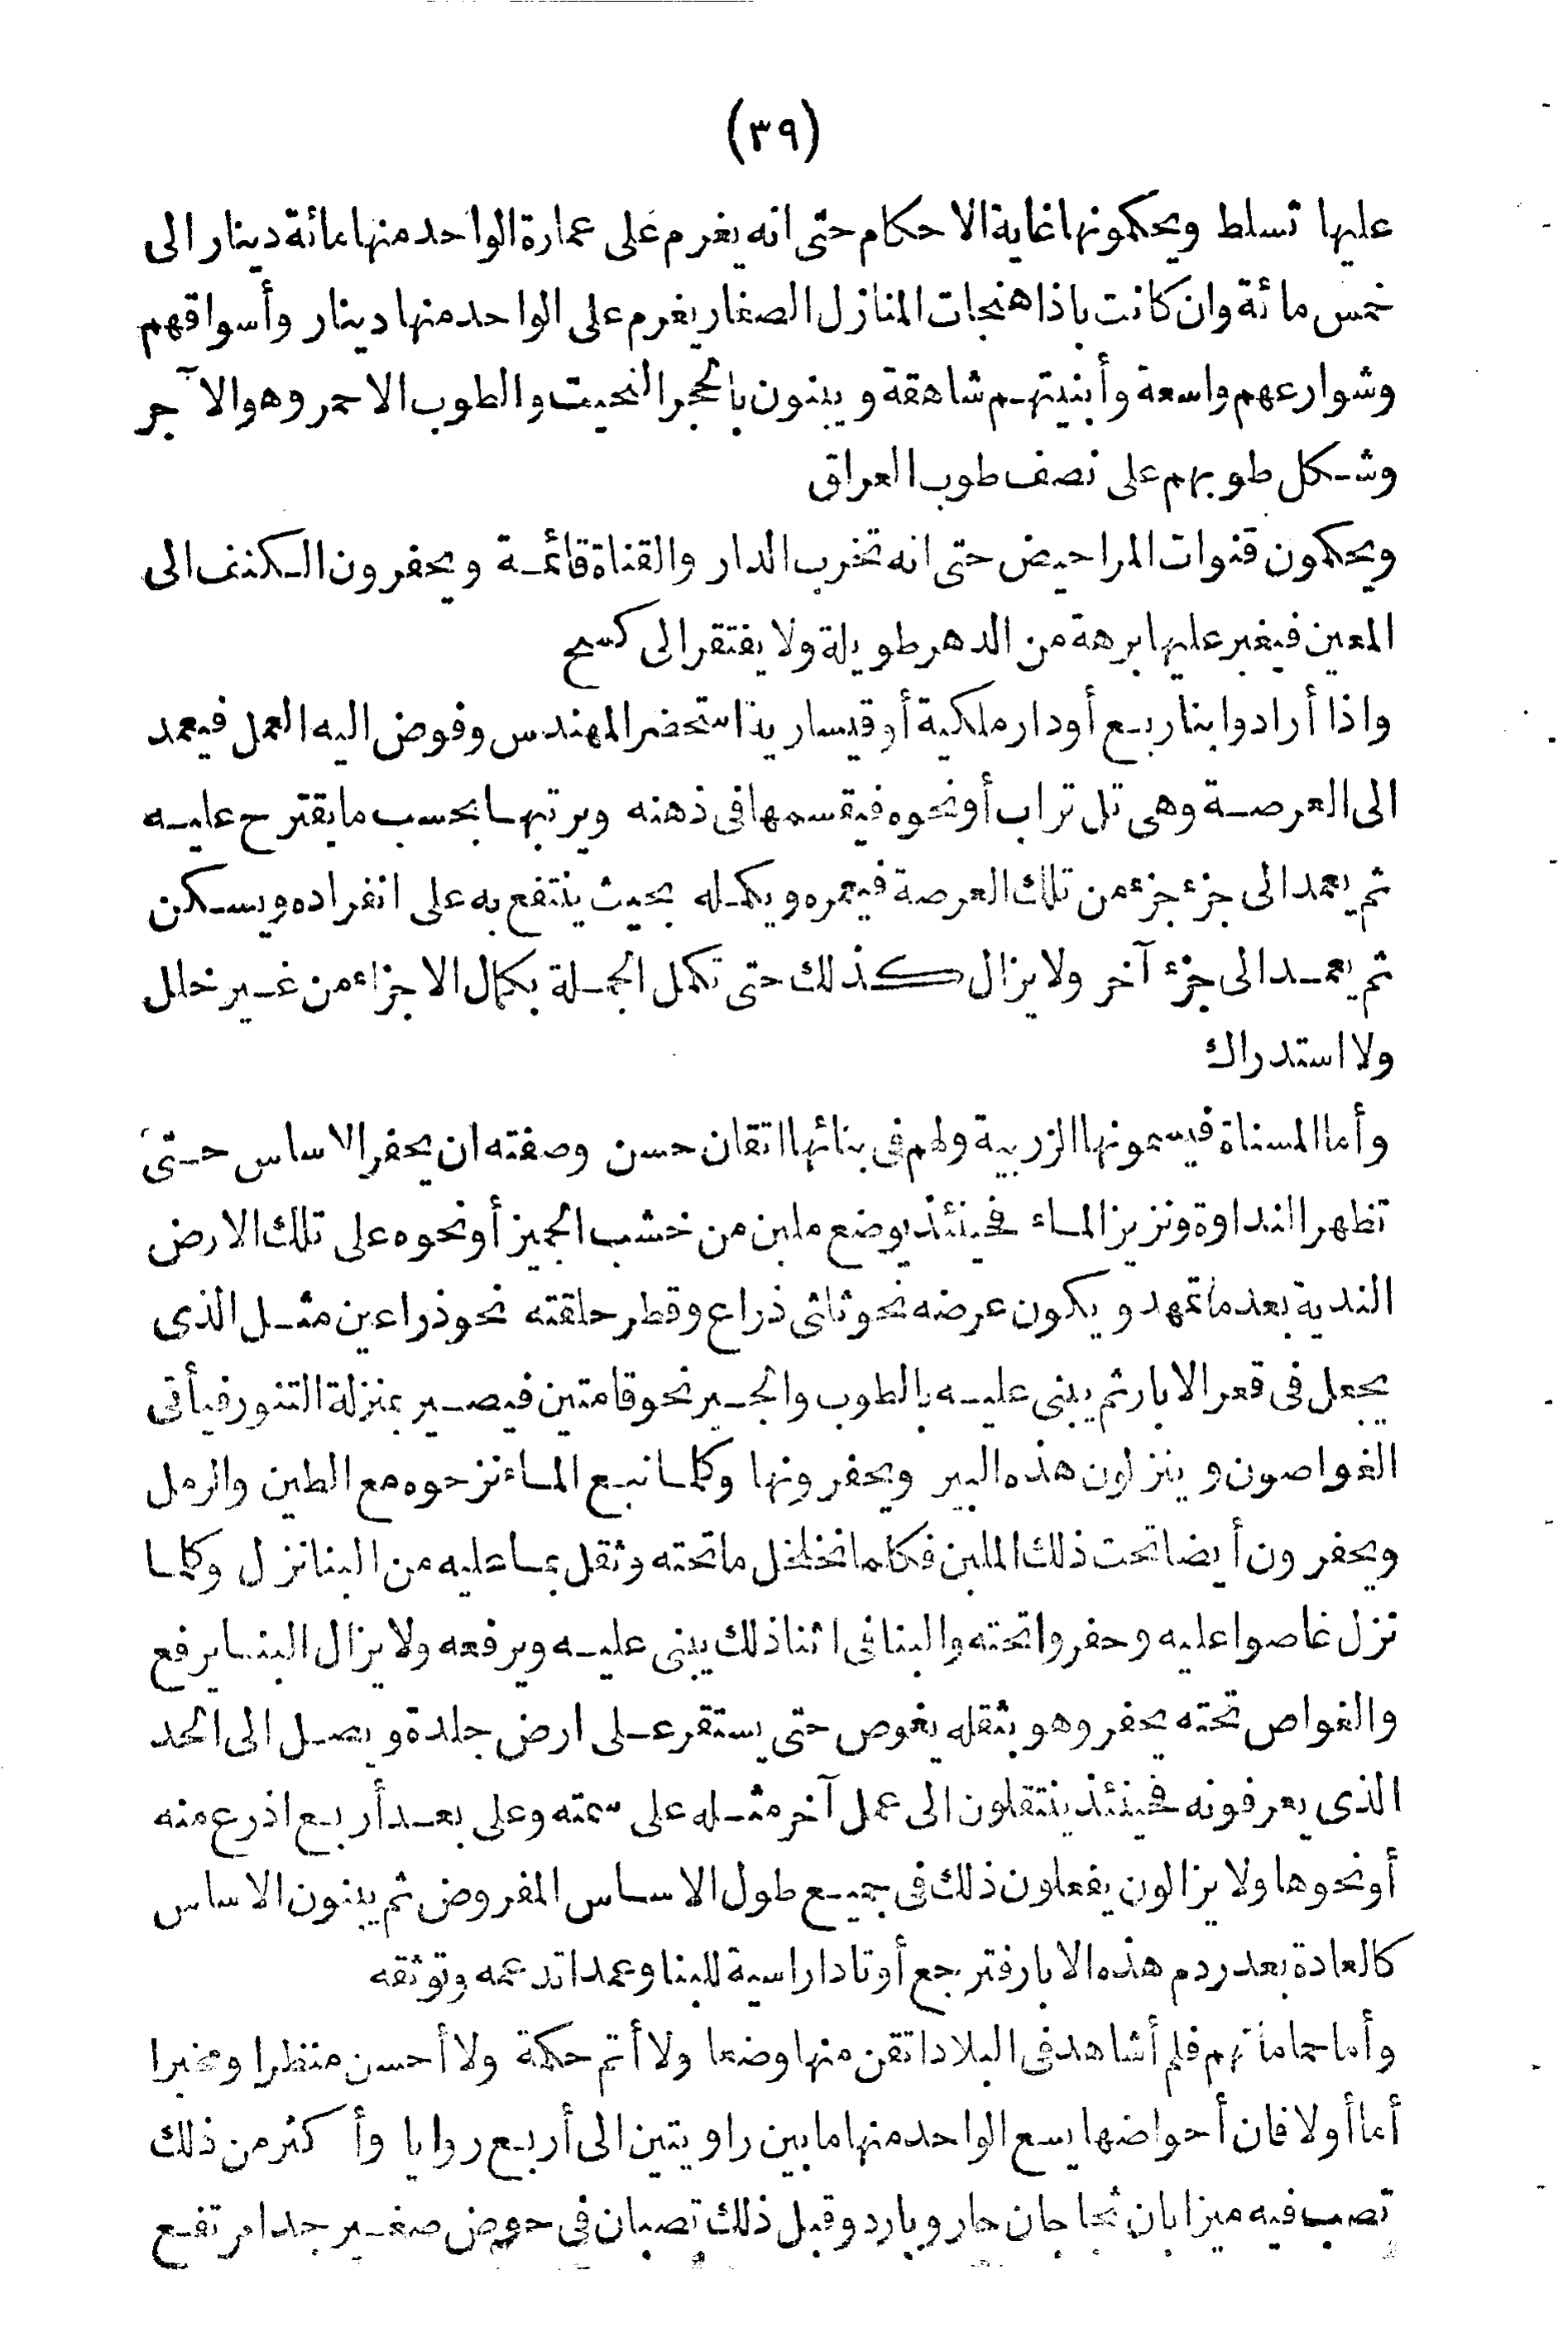 (٣٩)
عليها تسلط ويحكمونها غاية الاحكام حتى انه يغرم على عمارة الواحد منها مائة دينار الى
خمس مائة وان كانت باذاهنجات المنازل الصغار يغرم على الواحد منها دينار وأسواقهم
وشوارعهم واسعة وأبنيتهم شاهقة ويبنون بالحجر النحيت والطوب الاحمر وهو الآجر
وشكل طوبهم على نصف طوب العراق
ويحكمون قنوات المراحيض حتى انه تخرب الدار والقناة قائمة ويحفرون الكنف الى
المعين فيغبر عليها برهة من الدهر طويلة ولا يفتقر الى كسح
واذا أرادوا بنا ربع أو دار ملكية أو قيسارية استحضر المهندس وفوض اليه العمل فيعمد
الى العرصة وهى تل تراب أو نحوه فيقسمها فى ذهنه ويرتبها بحسب ما يقترح عليه
ثم يعمد الى جزء جزء من تلك العرصة فيعمره ويكمله بحيث ينتفع به على انفراده ويسكن
ثم يعمد الى جزء آخر ولا يزال كذلك حتى تكمل الجملة بكمال الاجزاء من غير خلل
ولا استدراك
وأما المسناة فيسمونها الزربية ولهم فى بنائها اتقان حسن وصفته ان يحفر الاساس حتى
تظهر النداوة ونزيز الماء فحينئذ يوضع ملبن من خشب الجميز أو نحوه على تلك الارض
الندية بعد ما تمهد ويكون عرضه نحو ثلثى ذراع وقطر حلقته نحو ذراعين مثل الذى
يجعل فى قعر الابار ثم يبنى عليه بالطوب والجير نحو قامتين فيصير بمنزلة التنور فيأتى
الغواصون وينزلون هذه البير ويحفرونها وكلما نبع الماء نزحوه مع الطين والرمل
ويحفرون أيضا تحت ذلك الملبن فكلما تخلخل ما تحته وثقل بما عليه من البنا نزل وكلما
نزل غاصوا عليه وحفروا تحته والبنا فى اثنا ذلك يبنى عليه ويرفعه ولا يزال البنا يرفع
والغواص تحته يحفر وهو بثقله يغوص حتى يستقر على ارض جلدة ويصل الى الحد
الذى يعرفونه فحينئذ ينتقلون الى عمل آخر مثله على سمته وعلى بعد أربع اذرع منه
أو نحوها ولا يزالون يفعلون ذلك فى جميع طول الاساس المفروض ثم يبنون الاساس
كالعادة بعد ردم هذه الابار فترجع أوتادا راسية للبنا وعمدا تدعمه وتوثقه
وأما حماماتهم فلم أشاهد فى البلاد اتقن منها وضعا ولا أتم حكمة ولا أحسن منظرا ومخبرا
أما أولا فان أحواضها يسع الواحد منها ما بين راويتين الى أربع روايا وأكثر من ذلك
تصب فيه ميزابان ثجاجان حار وبارد وقبل ذلك تصبان فى حوض صغير جدا مرتفع